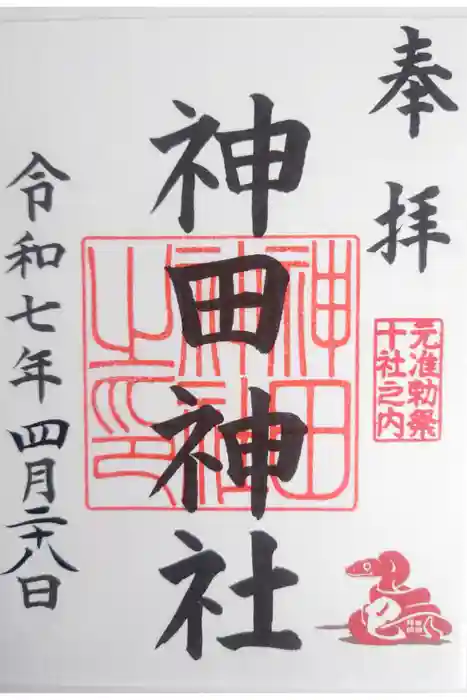 奉拝
元准勅祭
十社之内
神田神社
神田神社之印
令和七年四月二十八日